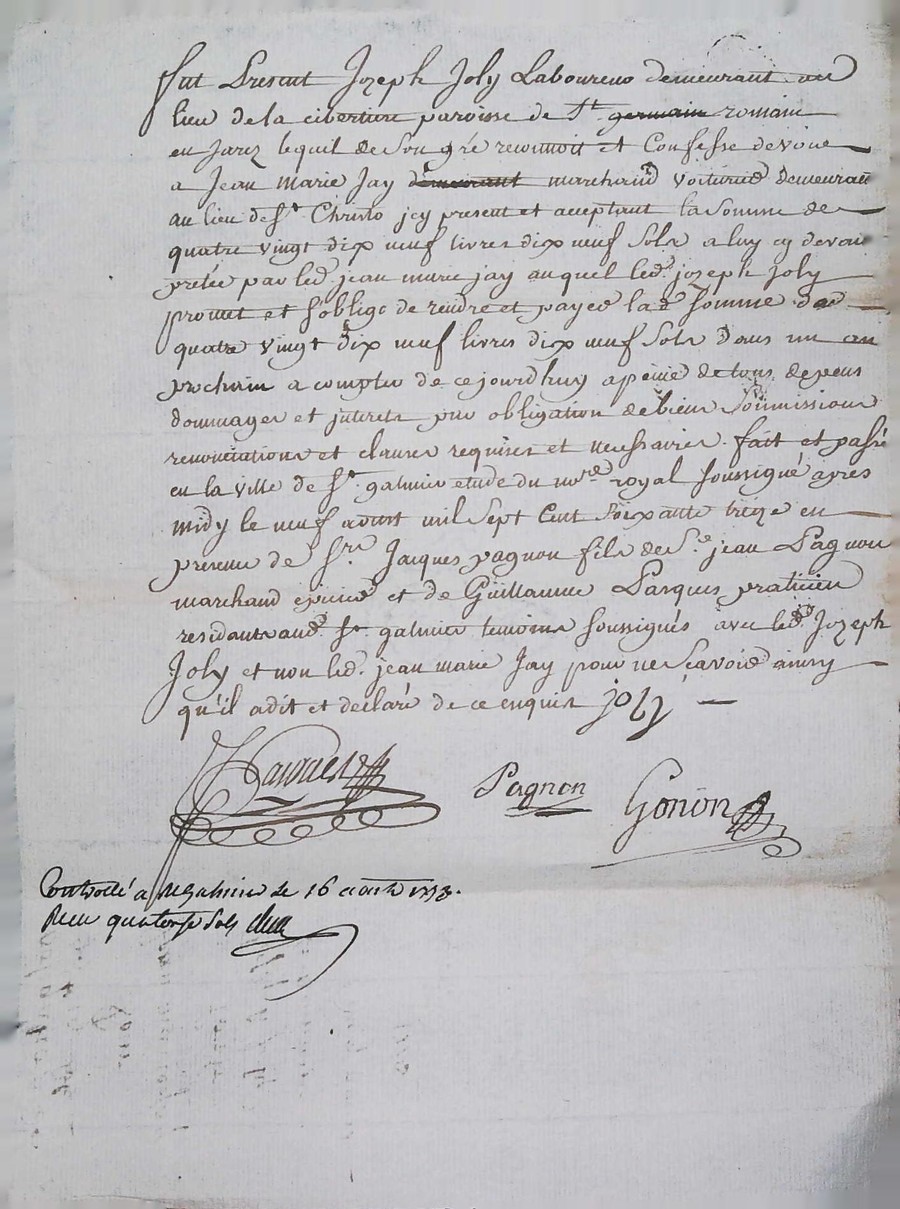 fut Present Jozeph Joly Laboureur demeurant au
lieu de la ciberture paroisse de St. germain romain
en Jarez lequel de son gré reconnoit et Confesse devoir
a Jean Marie Jay demeurant marchand voiturier demeurant
au lieu de St. Christo jcy present et acceptant la Somme de
quatre vingt dix neuf livres dix neuf Sols a luy cy devant
pretée par led. jean marie jay auquel led. jozeph Joly
promet et s'oblige de rendre et payer lad. Somme de
quatre vingt dix neuf livres dix neuf Sols dans un an
prochain a compter de cejourdhuy a peine de tous depens
dommages et jnterets par obligation de biens Soumissions
renonciations et clauses requises et necessaires. fait et passé
en la ville de St. galmier etude du nore. royal soussigné apres
midy le neuf aoust mil Sept Cent Soixante treize en
presence de Sr. Jacques pagnon fils de Sr. jean Pagnon
marchand epicier et de Guillaume Parques praticien
residants aud. St. galmier temoins soussignés avec led. Jozeph
Joly et non led. jean marie Jay pour ne Scavoir ainsy
qu'il a dit et declaré de ce enquis joly
Pagnon Gonon
Controllé a St Galmier le 16 aoust 1773.
Reçu quatorze Sols